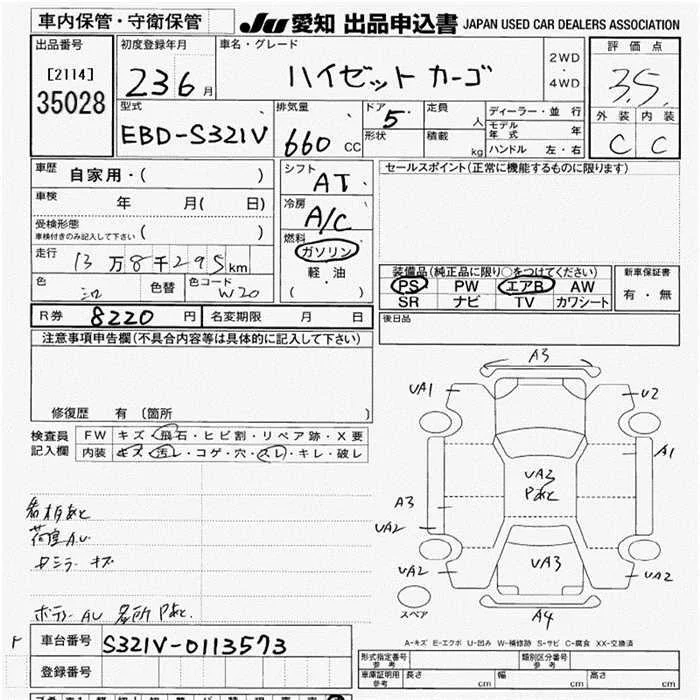 車内保管・守衛保管
JU 愛知 出品申込書 JAPAN USED CAR DEALERS ASSOCIATION
出品番号
[2114]
35028
初度登録年月
23 6 月
車名・グレード
ハイゼット カーゴ
2WD
・
4WD
評価点
3.5
外装 内装
C C
型式
EBD-S321V
排気量
660 CC
ドア
5
形状
定員
人
積載
kg
ディーラー・並行
モデル年式 年
ハンドル 左・右
車歴
自家用・( )
車検
年 月( 日)
受検形態
車検付きのみ記入して下さい ( )
走行
13万8千295km
色
シロ
色替
色コード
W20
シフト
AT
冷房
A/C
燃料
ガソリン
軽・油
( )
セールスポイント(正常に機能するものに限ります)
装備品(純正品に限り○をつけてください)
PS PW エアB AW
SR ナビ TV カワシート
新車保証書
有・無
R券 8220 円
名変期限 月 日
後日品
注意事項申告欄(不具合内容等は具体的に記入して下さい)
修復歴 有 (箇所 )
検査員
記入欄
FW キズ・飛石・ヒビ割・リペア跡・X要
内装 キズ・汚レ・コゲ・穴・スレ・キレ・破レ
看板あと
荷室AU
Fミラーキズ
ボデーAU 各所Pあと
A3
UA1
U2
A1
UA3
Pあと
A3
UA2
UA2
UA3
UA2
A4
スペア
A-キズ E-エクボ U-凹み W-補修跡 S-サビ C-腐食 XX-交換済
車台番号 S321V-0113573
登録番号
形式指定番号
参考
類別区分番号
参考
車庫証明用
参考
長さ cm 幅 cm 高さ cm